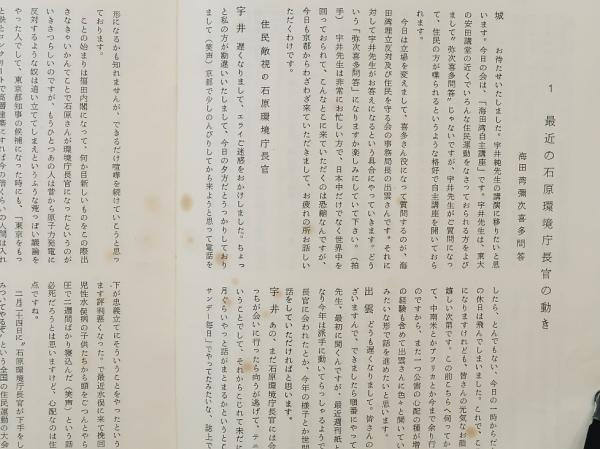 1 最近の石原環境庁長官の動き
海田湾彌次喜多問答
城　お待たせいたしました。宇井純先生の講演に移りたいと思
います。今日の会は、「海田湾自主講座」です。宇井先生は、東大
の安田講堂の近くでいろんな住民運動をなさっておられる方をよび
まして〝弥次喜多問答〟じゃないですが、宇井先生がご質問になっ
て、住民の方が喋られるというような格好で自主講座を開いておら
れます。
今日は立場を変えまして、喜多さん役になって質問するのが、海
田湾埋立反対及び住民を守る会の事務局長の出雲さんです。それに
対して宇井先生がお答えになるという具合にやっていきます。どう
いう「弥次喜多問答」になりますか楽しみにしていて下さい。（拍
手）　宇井先生は非常にお忙しい方で、日本中だけでなく世界中を
回っておられて、こんなとこに来ていただくのは恐縮なんですが、
今日も京都からわざわざ来ていただきまして、お疲れの所お話しい
ただくわけです。
住民敵視の石原環境庁長官
宇井　遅くなりまして、エライご迷惑をおかけしました。ちょっ
と私の方が勘違いいたしまして、今日の夕方だとうっかりしており
まして（笑声）京都で少しのんびりしてから来ようと思って電話を
したら、とんでもない、今日の一時からだ
の休日は飛んでしまいました。これで、こ
になりますけれども、皆さんの元気なお顔
嬉しい次第です。この前こちらへ伺ってか
て、中南米とかアフリカとか今まで余り行
のですから、また一つ公害の心配の種が増
の経験も含めて出雲さんに色々と聞いてい
みたいな形で話を進めたいと思います。
出雲　どうも遅くなりまして。皆さんの
すいませんで、できましたら順番にやって
先生、最初に聞くんですが、最近週刊紙と
なり今年は派手に動いてらっしゃるようで
長官に会われたとか、今年の様子とか世間
話をしていただければと思います。
宇井　あの、まだ石原環境庁長官には会
っちが会いに行ったら向うが逃げて、テニ
いうことでして、それからこじれて未だに
月ぐらいやっと話がまとまるかというとこ
サンデー毎日」でやってみたいな、誌上で
形になるかも知れませんが、できるだけ喧嘩を続けていこうと思っ
ております。
ことの始まりは福田内閣になって、何か目新しいものをこの際出
さなきゃいかんてことで石原さんが環境庁長官になったというのが
いきさつらしいのですが、もうひとつあの人は昔から原子力発電に
反対するような奴は追い立ててしまえというふうな荒っぽい議論を
やった人でして、東京都知事の候補になった時にも、「東京をもっ
と鉄とコンクリートで高層建築にすれば今の倍くらいの人間は入れ
下が忠義立てにそういうことをやったという
ます評判悪くなった。で最近水俣に来て挽回
児性水俣病の子供たちから頭をごつんとやら
圧で二週間ばかり寝込んだ（笑声）という話
必死だろうとは思いますけど、心配なのは住
点ですね。
二月二十四日に〝石原環境庁長官が下手をし
みついてやるぞ〟という全国の住民運動の大会